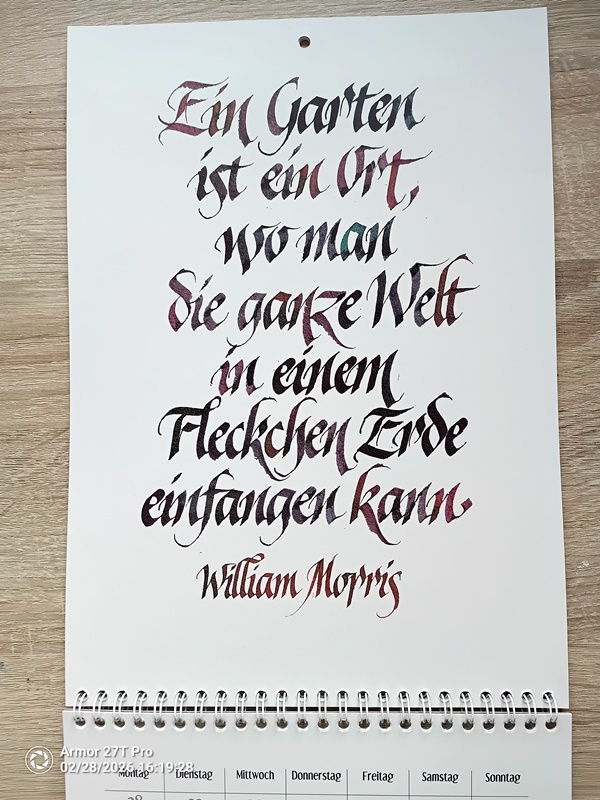 Ein Garten
ist ein Ort,
wo man
die ganze Welt
in einem
Fleckchen Erde
einfangen kann.
William Morris
Armor 27T Pro
02/28/2026 16:19:28
Montag Dienstag Mittwoch Donnerstag Freitag Samstag Sonntag